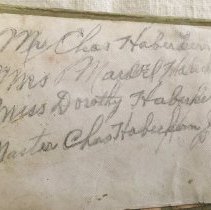 Mr. Chas Haberkern
Mrs Mandel
Miss Dorothy Haberke
Master Chas Haberkern J